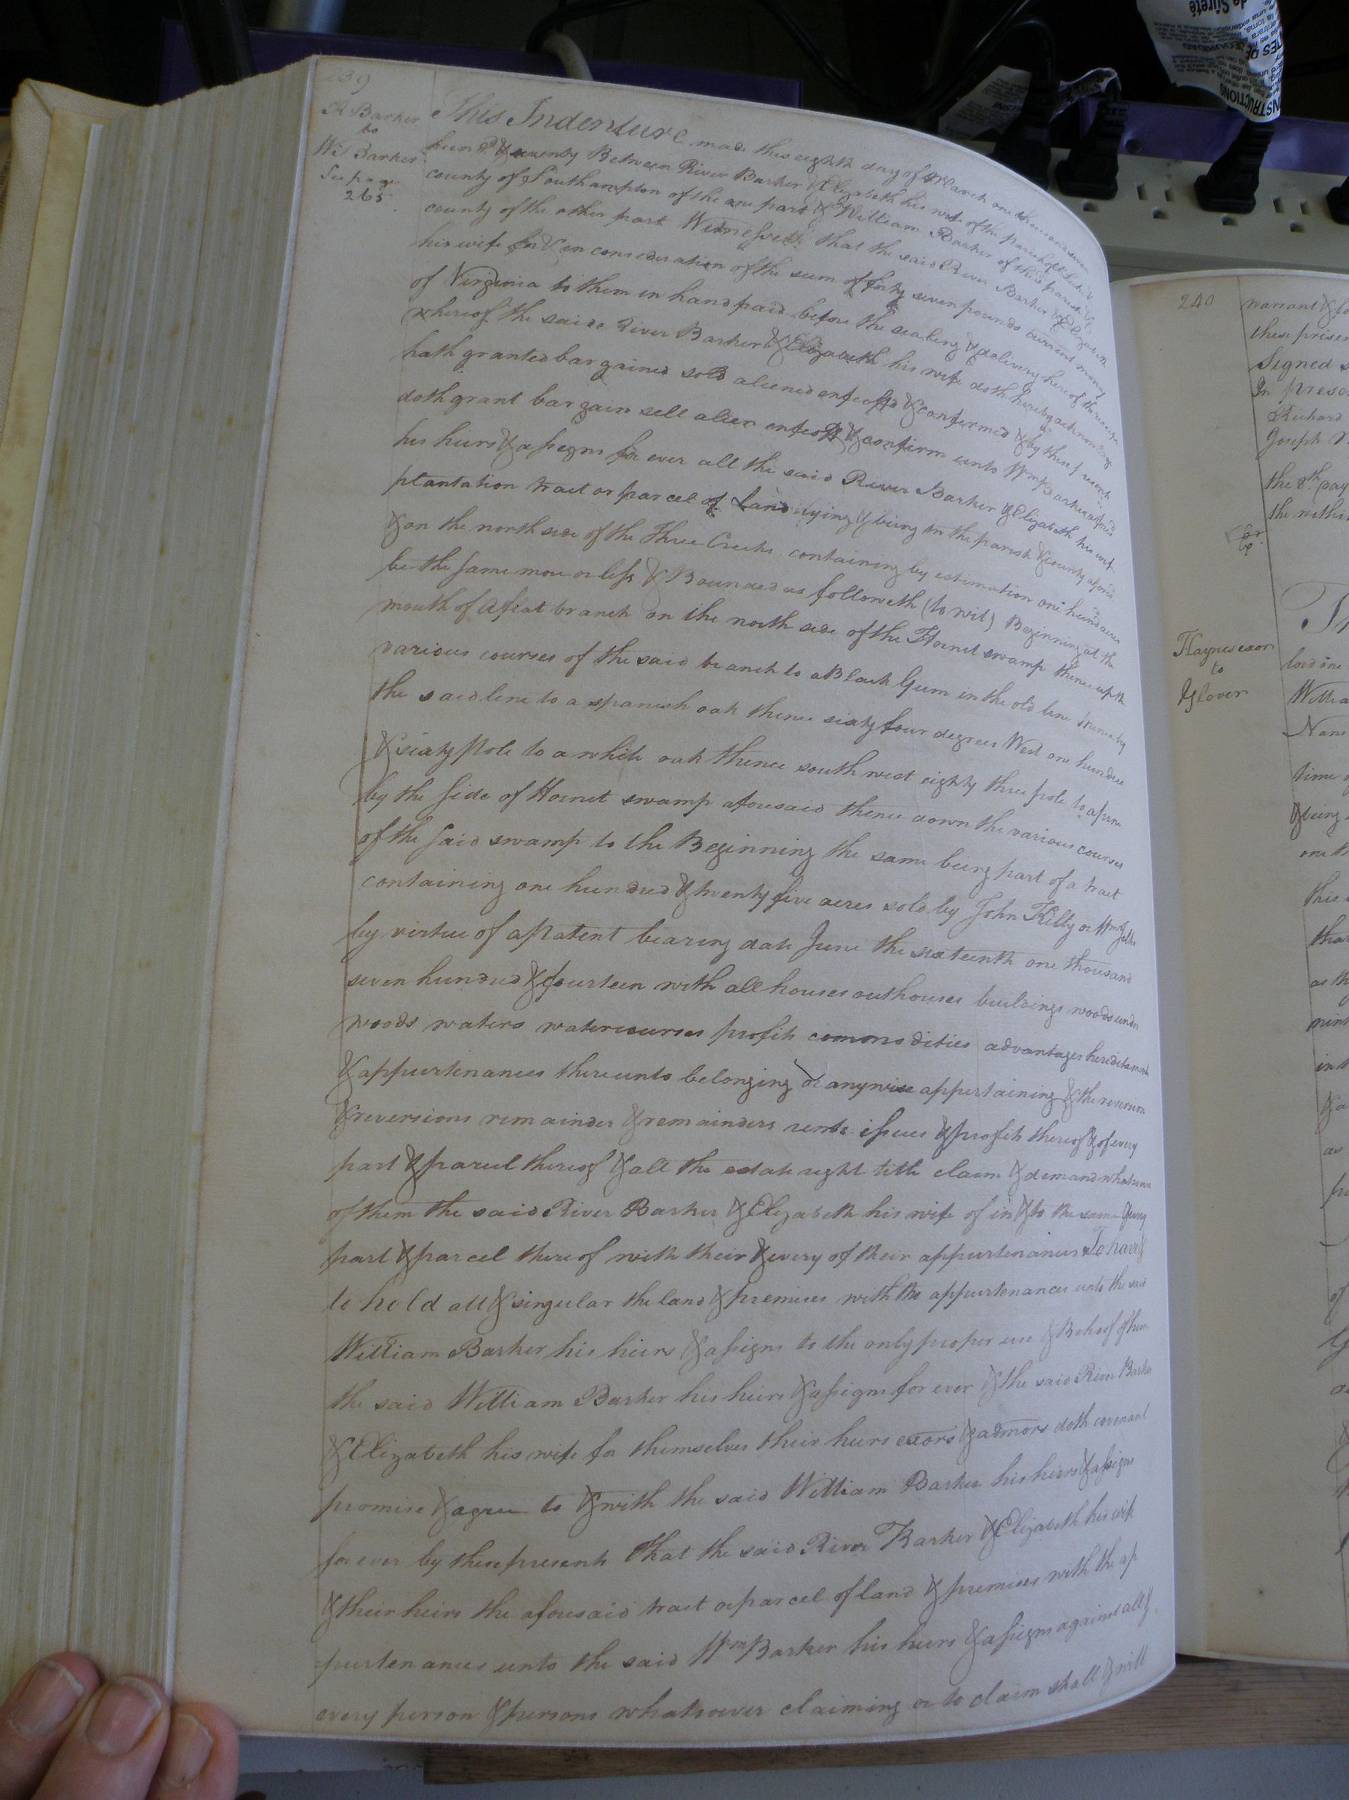 239
R Barker
to
W. Barker
See page
265
This Indenture made this eighth day of March one thousand seven
hund.d & seventy Between River Barker & Elizabeth his wife of the parish of
county of Southampton of the one part & William Barker of the parish &
county of the other part Witnesseth that the said River Barker & Elizabeth
his wife for & in consideration of the sum of forty seven pounds current money
of Virginia to them in hand paid before the sealing & delivery hereof the
whereof the said River Barker & Elizabeth his wife doth hereby acknowledge
hath granted bargained sold aliened enfeoffd & confirmed & by these presents
doth grant bargain sell alien enfeoff & confirm unto Wm Barker aforsd
his heirs & assigns for ever all the said River Barker & Elizabeth his wife
plantation tract or parcel of Land lying & being in the parish & county aforsd
& on the north side of the Three Creeks containing by estimation one hundred acres
be the same more or less & Bounded as followeth (to wit) Beginning at the
mouth of a flat branch on the north side of the Hornet swamp thence up the
various courses of the said branch to a Black Gum in the old line thence by
the said line to a spanish oak thence sixty four degrees West one hundred
& sixty pole to a white oak thence south west eighty three pole to a pine
by the side of Hornet swamp aforesaid thence down the various courses
of the said swamp to the Beginning the same being part of a tract
containing one hundred & twenty five acres sold by John Kelly or Wm
by virtue of a Patent bearing date June the sixteenth one thousand
seven hundred & fourteen with all houses outhouses buildings woods under
woods waters watercourses profits commodities advantages hereditaments
& appurtenances thereunto belonging or anywise appertaining & the reversion
& reversions remainder & remainders rents issues & profits thereof & of every
part & parcel thereof & all the estate right title claim & demand whatsoever
of them the said River Barker & Elizabeth his wife of in & to the same & every
part & parcel thereof with their & every of their appurtenances To have &
to hold all & singular the land & premises with the appurtenances unto the said
William Barker his heirs & assigns to the only proper use & Behoof of him
the said William Barker his heirs & assigns for ever & the said River Barker
& Elizabeth his wife for themselves their heirs exors & admors doth covenant
promise & agree to & with the said William Barker his heirs & assigns
for ever by these presents that the said River Barker & Elizabeth his wife
& their heirs the aforesaid tract or parcel of land & premises with the ap
purtenances unto the said Wm Barker his heirs & assigns against all &
every person & persons whatsoever claiming or to claim shall & will
240
warrant &
these presen
Signed s
In presen
Richard
Joseph
the 8th day
the within
Haynes exor
to
Glover
Willia
Name
time
& being
one th
this
that
as th
in
of
de Sûreté
INSTRUCTIONS